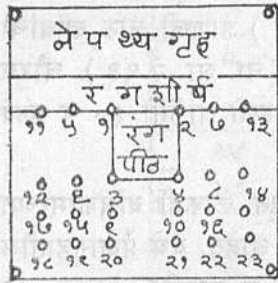 ने प थ्य गृह
र ग शी र्ष
११ ५ १ रंग २ ७ १३
पीठ
१२ ६ ३ ४ ८ १४
१७ १५ ९ १० १६
१८ १९ २० २१ २२ २३